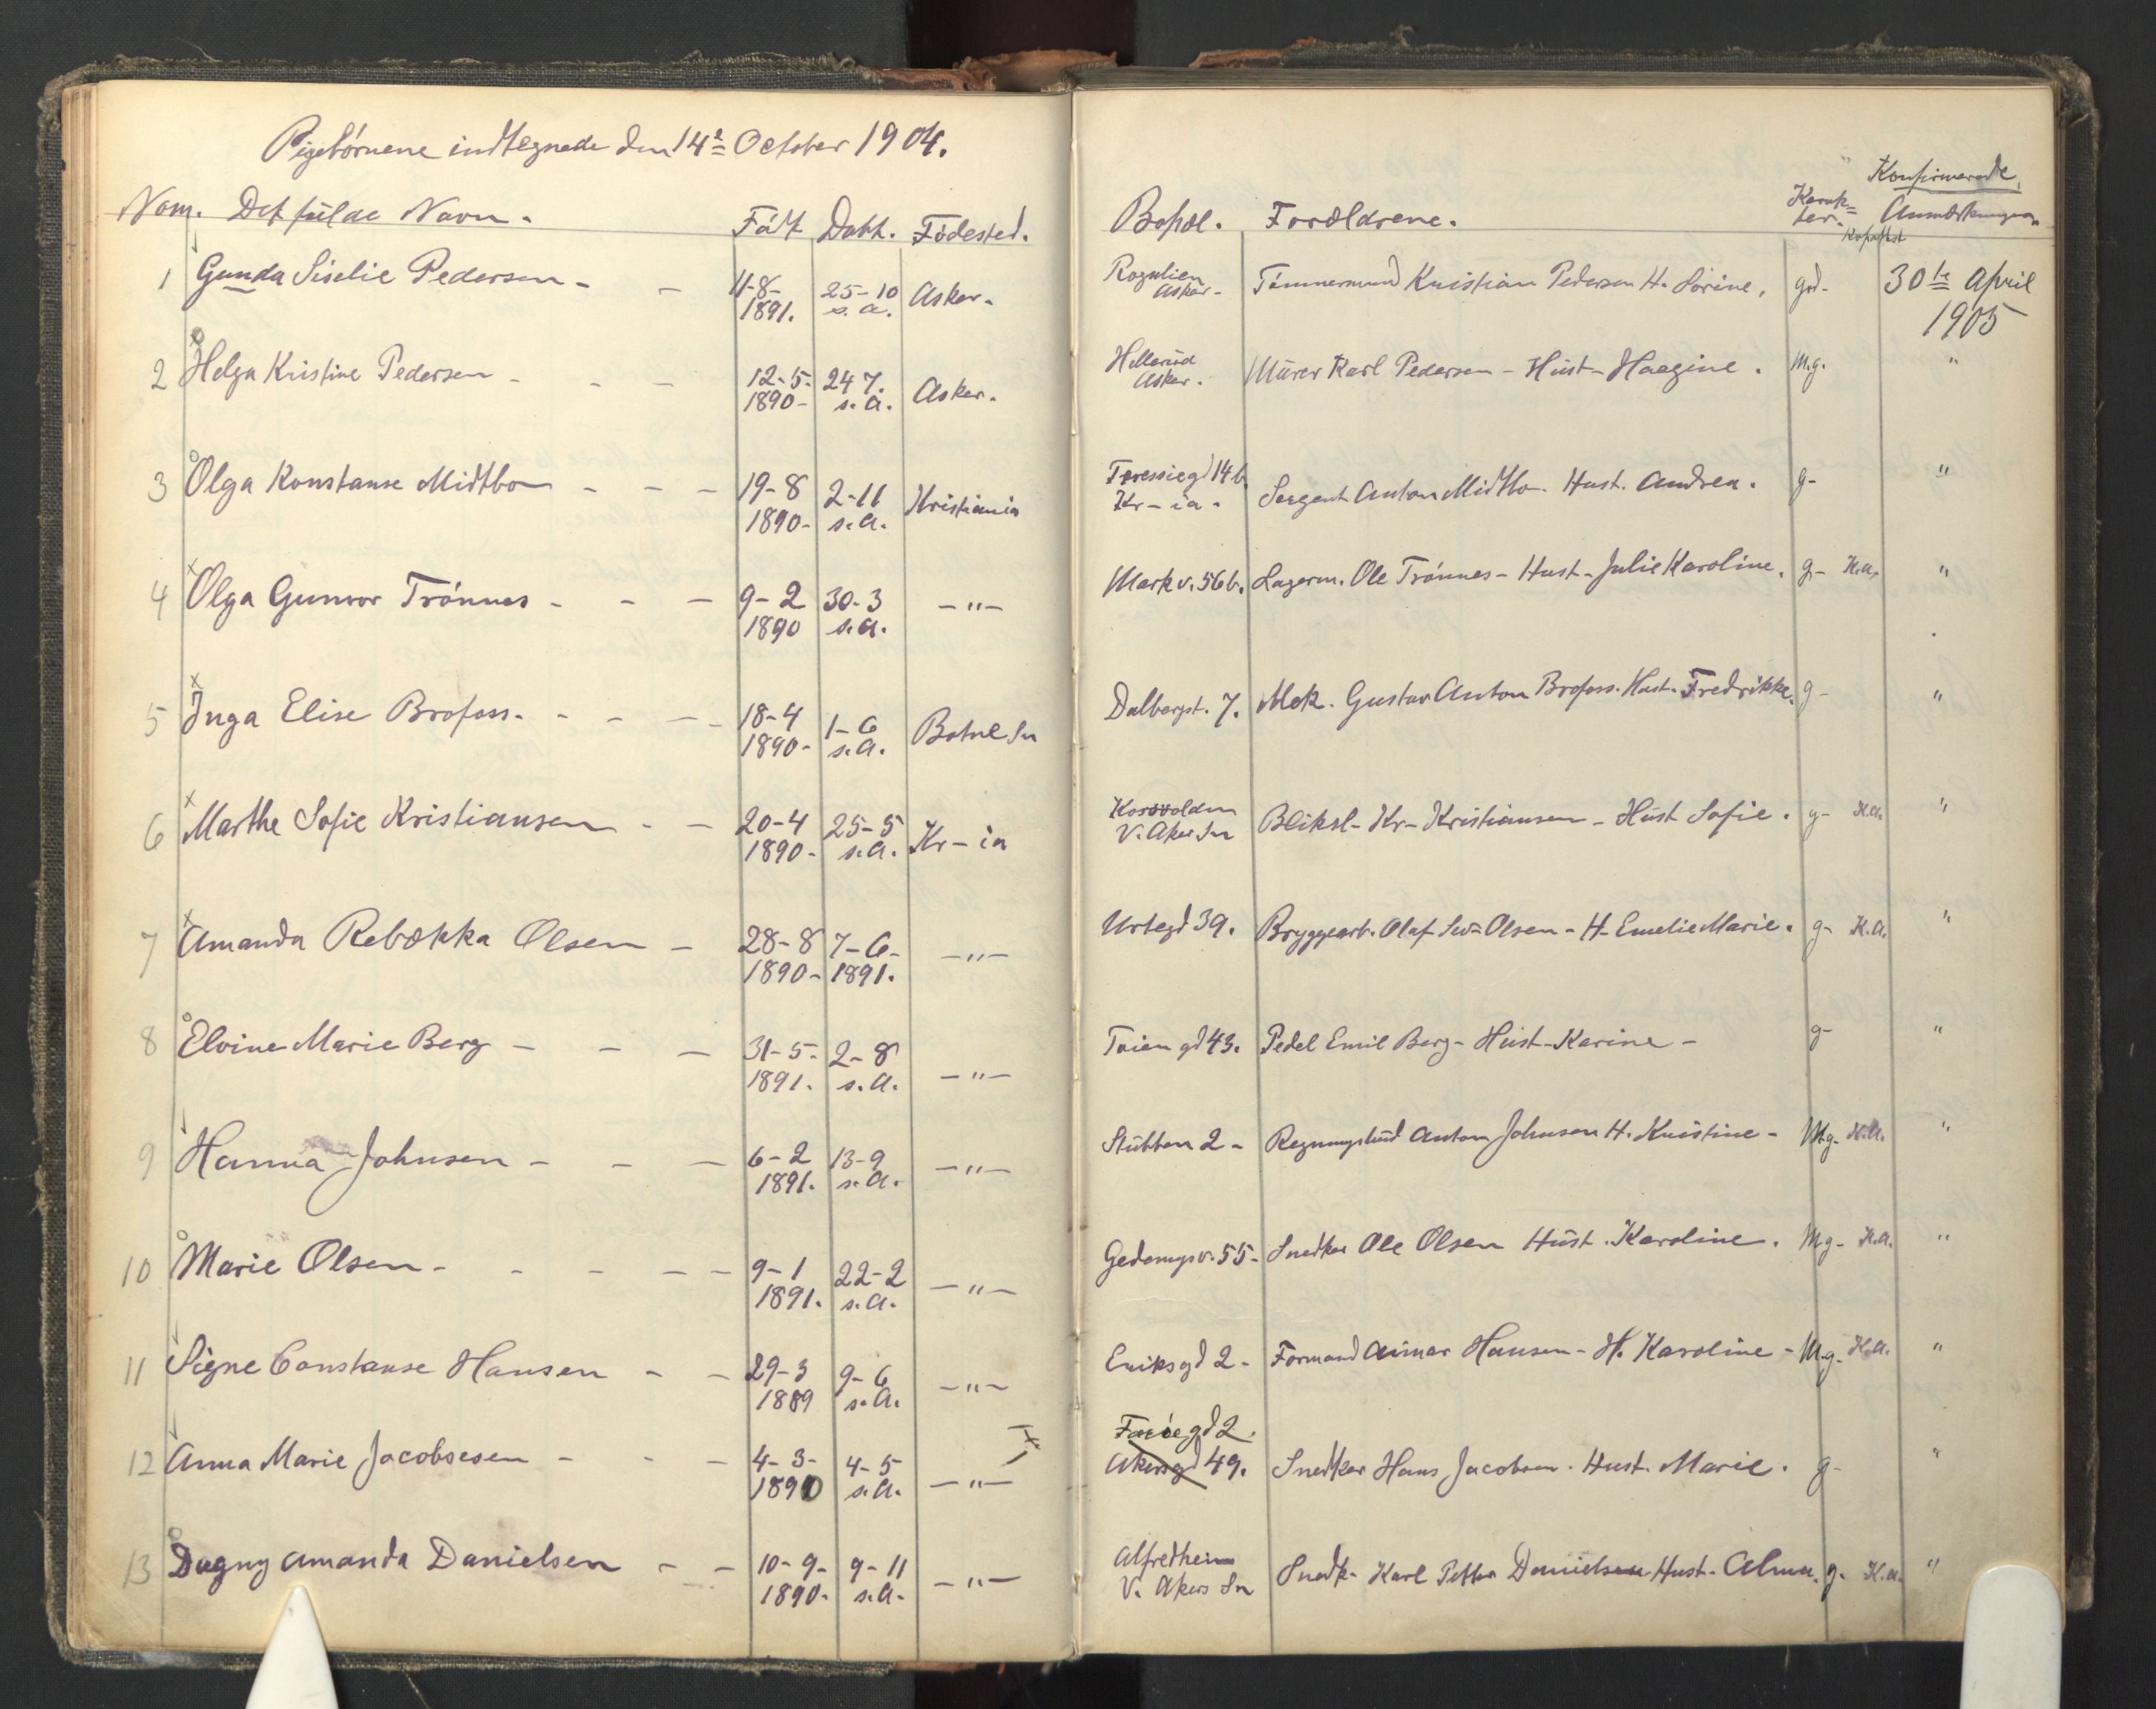 Pigebørnene indtegnede den 14de October 1904.
Nom. Det fulde Navn. Født Døbt. Fødested. Bopæl. Forældrene. Karakter. Konfirmerede Anmærkninger
1 Gunda Siselie Pedersen - - 11-8- 1891. 25-10 s.a. Asker.
Asker. Tømmermand Kristian Pedersen H. Sørine. gd- 30te April 1905
2 Helga Kristine Pedersen - - - 12-5- 1890- 24 7. s.a. Asker.
Hellerud Asker. Murer Karl Pedersen - Hust- Haagine. M.g. "
3 Olga Konstanse Midtbo - - - 19-8 1890- 2-11 s.a. Kristiania
14b. Kr-ia. Sergent Anton Midtbo. Hust. Andrea. g- "
4 Olga Gunvor Trønnes - - - 9-2 1890 30-3 s.a. -"-
Markv. 56b. Lagerm. Ole Trønnes - Hust- Julie Karoline. g- K.a. "
5 Inga Elise Brofoss. - - - - 18-4 1890- 1-6 s.a. Botne Sn
Dalbergst. 7. Mek. Gustav Anton Brofoss. Hust. Fredrikke. g- "
6 Marthe Sofie Kristiansen - - 20-4 1890- 25-5 s.a. Kr-ia
Korsvolden V. Aker Sn Bliksl- Kr- Kristiansen - Hust Sofie. g- K.a. "
7 Amanda Rebækka Olsen - 28-8 1890- 7-6- 1891. -"-
Urtegd 39. Bryggearb. Olaf Sev- Olsen - H- Emelie Marie. g- K.a. "
8 Elvine Marie Berg - - - 31-5- 1891. 2-8 s.a. -"-
Tøiengd 43. Pedel Emil Berg - Hust- Karine - g- "
9 Hanna Johnsen - - - 6-2 1891. 13-9 s.a. -"-
Stubben 2 - Anton Johnsen H. Kristine - Mg- K.a. "
10 Marie Olsen - - - - - 9-1 1891. 22-2 s.a. -"-
55- Snedker Ole Olsen Hust. Karoline. Mg- K.a. "
11 Signe Constanse Hansen - - 29-3 1889 9-6 s.a. -"-
Eriksgd 2 - Formand Aimar Hansen - H. Karoline - M.g- K.a. "
12 Anna Marie Jacobsesen - - - 4-3- 1890 4-5 s.a. -"-
gd 2. Akersgd 49. Snedker Hans Jacobsen. Hust. Marie. g- "
13 Dagny Amanda Danielsen - - 10-9- 1890- 9-11 s.a. -"-
Alfredheim V. Akers Sn Snedk- Karl Petter Danielsen Hust- Alma. g- K.a. "